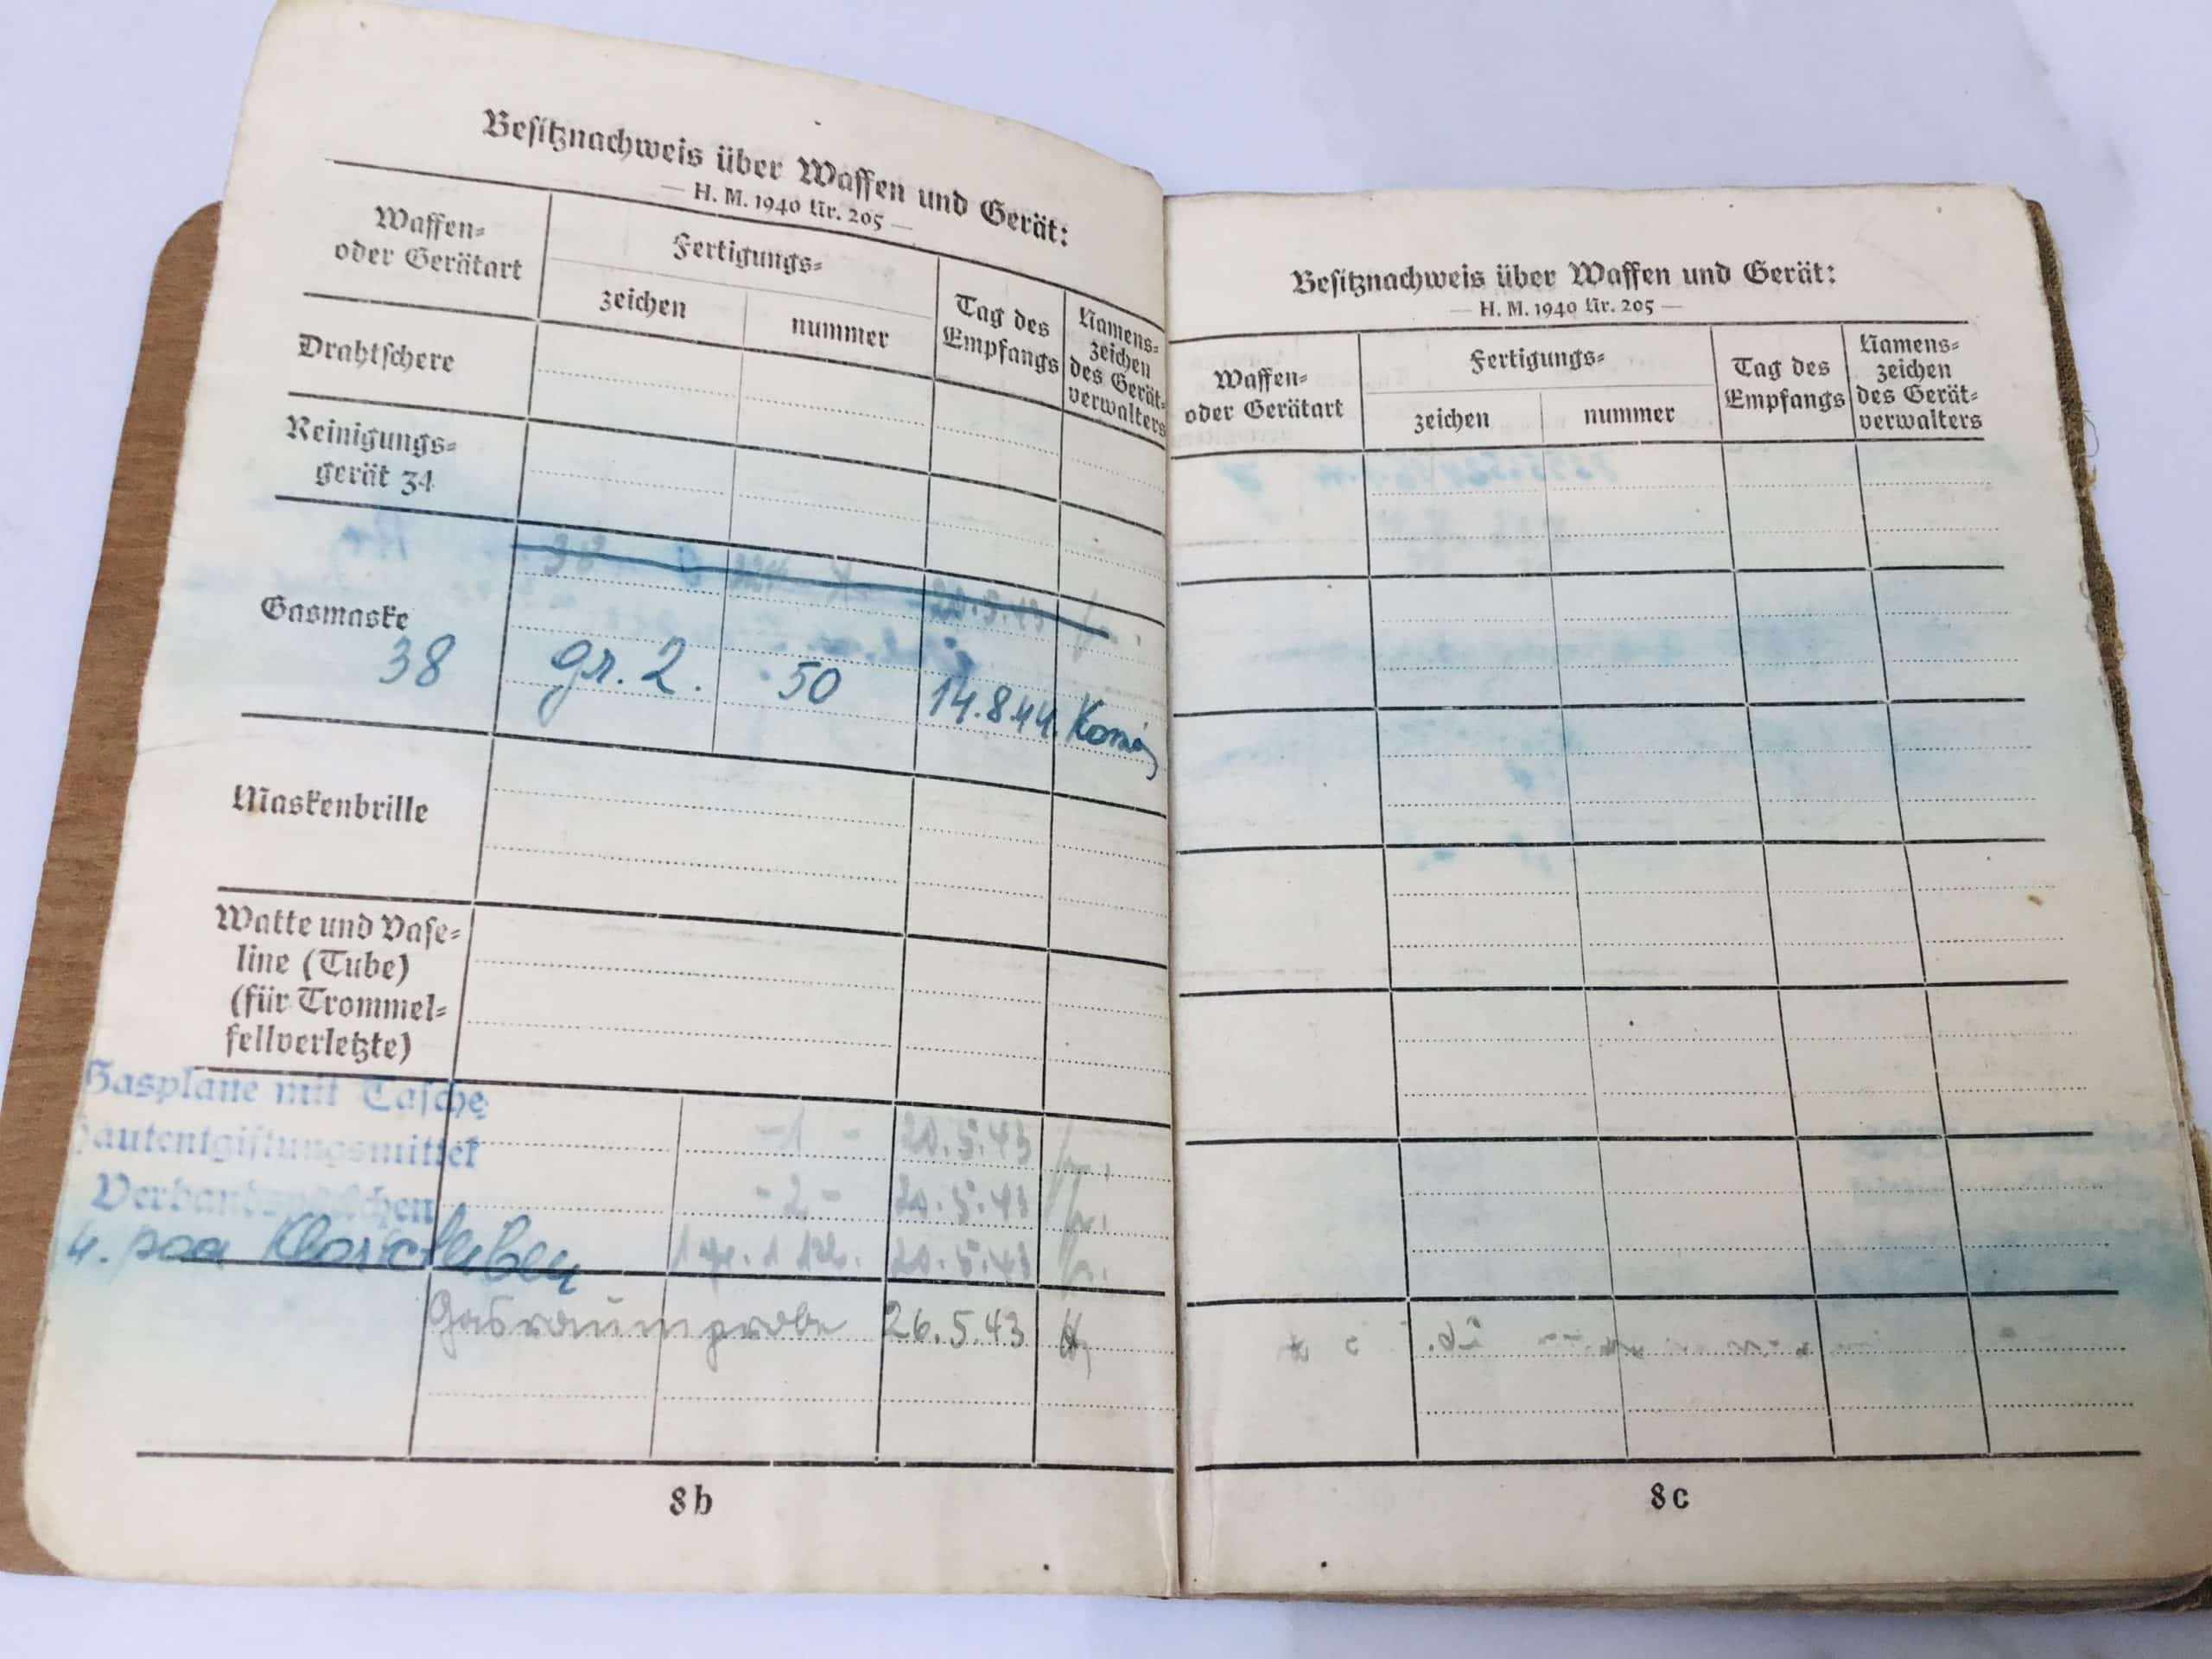 Besitznachweis über Waffen und Gerät:
— H. M. 1940 Nr. 205 —
Waffen-
oder Gerätart
Fertigungs-
zeichen
nummer
Tag des
Empfangs
Namens-
zeichen
des Gerät-
verwalters
Drahtschere
Reinigungs-
gerät 34
38
20.5.43
Gasmaske
38 gr. 2. 50 14.8.44.
Maskenbrille
Watte und Vase-
line (Tube)
(für Trommel-
fellverletzte)
Gasplane mit Tasche
-1- 20.5.43
autentgiftungsmittel
-2- 20.5.43
Verbandspäckchen
20.5.43
Gasraumprobe 26.5.43
8b
Besitznachweis über Waffen und Gerät:
— H. M. 1940 Nr. 205 —
Waffen-
oder Gerätart
Fertigungs-
zeichen
nummer
Tag des
Empfangs
Namens-
zeichen
des Gerät-
verwalters
8c